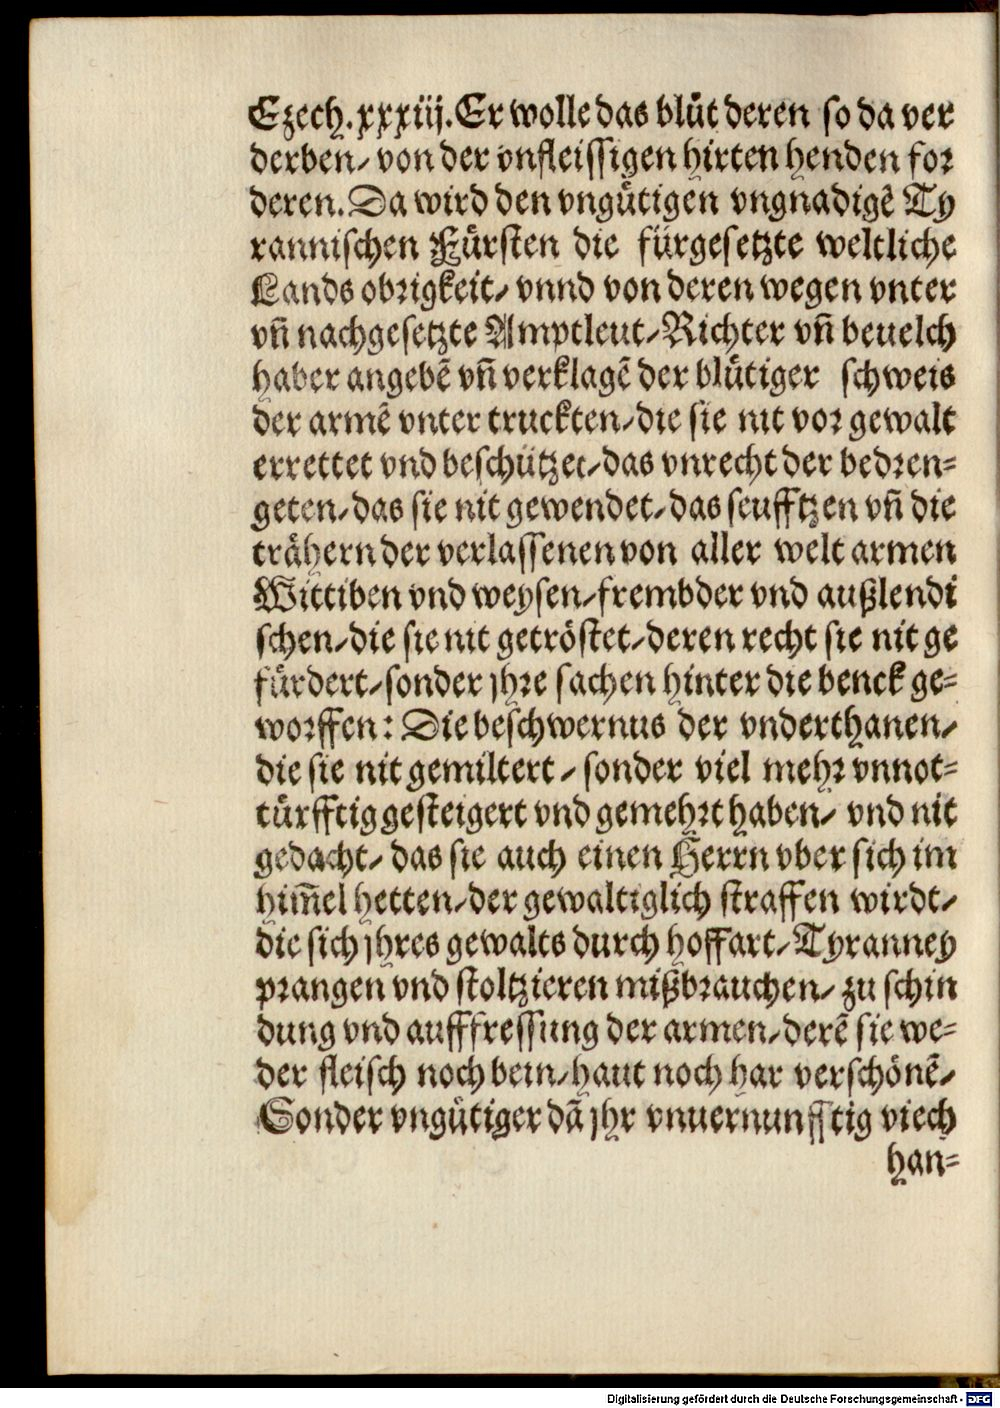 Ezech.xxxiij.Er wolle das blůt deren so da ver
derben/ von der vnfleissigen hirten henden for
deren. Da wird den vngůtigen vngnadigẽ Ty
rannischen Fůrsten die fůrgesetzte weltliche
Lands obrigkeit/ vnnd von deren wegen vnter
vñ nachgesetzte Amptleut/ Richter vñ beuelch
haber angebẽ vñ verklagẽ der blůtiger schweis
der armẽ vnter truckten/ die sie nit vor gewalt
errettet vnd beschůtzet/ das vnrecht der bedren=
geten/ das sie nit gewendet/ das seufftzen vñ die
trähern der verlassenen von aller welt armen
Wittiben vnd weysen/ frembder vnd außlendi
schen/ die sie nit getröstet/ deren recht sie nit ge
fůrdert/ sonder jhre sachen hinter die benck ge=
worffen: Die beschwernus der vnderthanen/
die sie nit gemiltert / sonder viel mehr vnnot=
tůrfftig gesteigert vnd gemehrt haben/ vnd nit
gedacht/ das sie auch einen Herrn vber sich im
him̃el hetten/ der gewaltiglich straffen wirdt/
die sich jhres gewalts durch hoffart/ Tyranney
prangen vnd stoltzieren mißbrauchen/ zu schin
dung vnd aufffressung der armen/ derẽ sie we=
der fleisch noch bein/ haut noch har verschönẽ/
Sonder vngůtiger dã jhr vnuernunfftig viech
han=
Digitalisierung gefördert durch die Deutsche Forschungsgemeinschaft - DFG